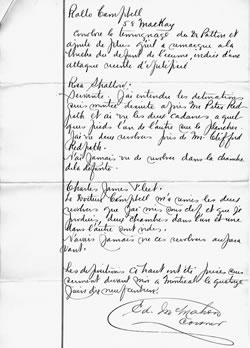 Rollo Campbell
58 MacKay
Corrobore le témoignage du Dr Patton et
ajoute de plus qu'il a remarqué à la
bouche du défunt de l'écume, indice d'une
attaque récente d'épilepsie.
Rosa Shallow:
Servante. J'ai entendu les détonations
puis montée ensuite après Mr Peter Red-
path et ai vu les deux cadavres à quel-
ques pieds l'un de l'autre sur le plancher.
J'ai vu deux revolvers près de Mr Clifford
Redpath.
N'ai jamais vu de revolver dans la chambre
de la défunte.
Charles James Fleet.
Le Docteur Campbell m'a remis les deux
revolvers que j'ai mis sous clef et que je
produis, deux chambres dans l'un et une
dans l'autre sont vides.
N'avais jamais vu ces revolvers aupara
vant.
Les dépositions ci haut ont été prises sous
serment devant moi à Montréal le quatorze
Juin dix neuf cent un.
Ed. McMahon
Coroner